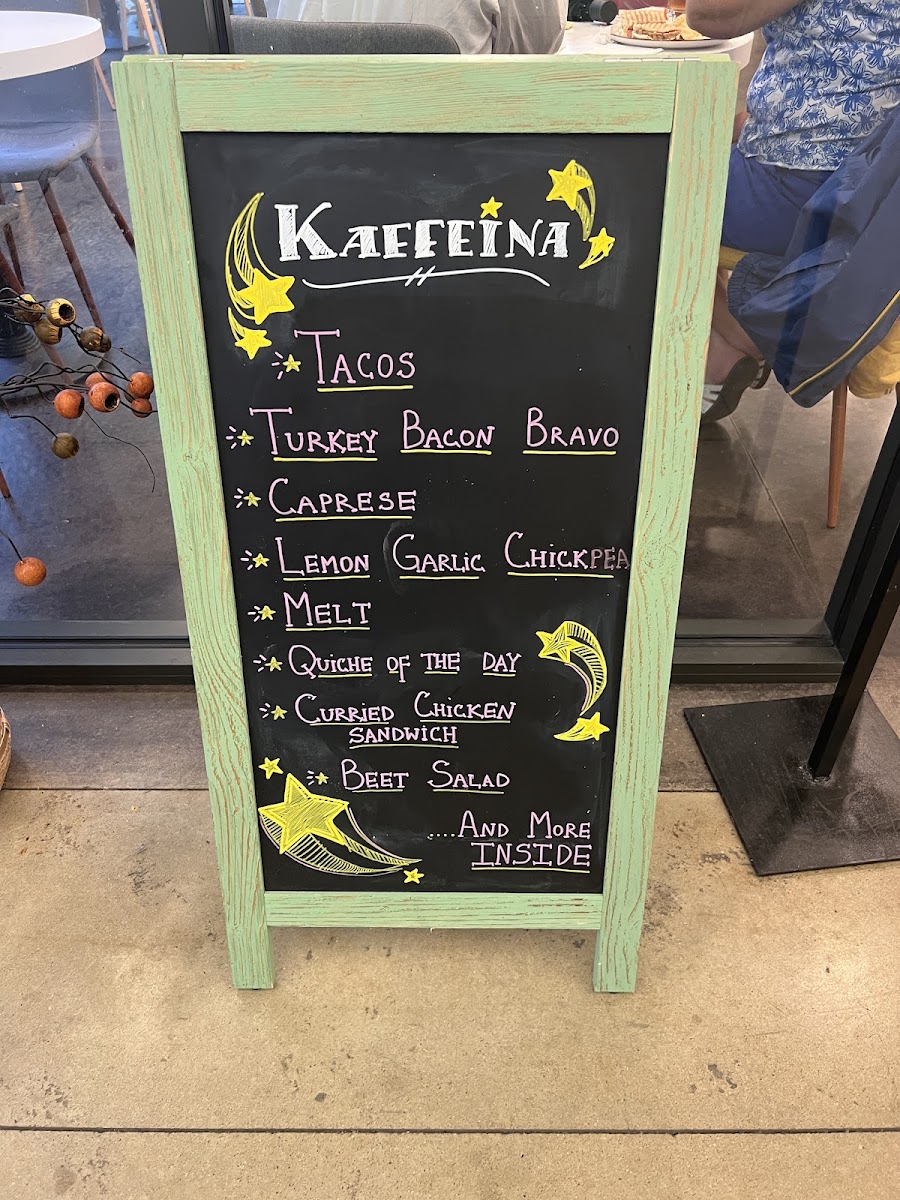 KAFFEINA
TACOS
TURKEY BACON BRAVO
CAPRESE
LEMON GARLIC CHICKPEA
MELT
QUICHE OF THE DAY
CURRIED CHICKEN
SANDWICH
BEET SALAD
....AND MORE
INSIDE